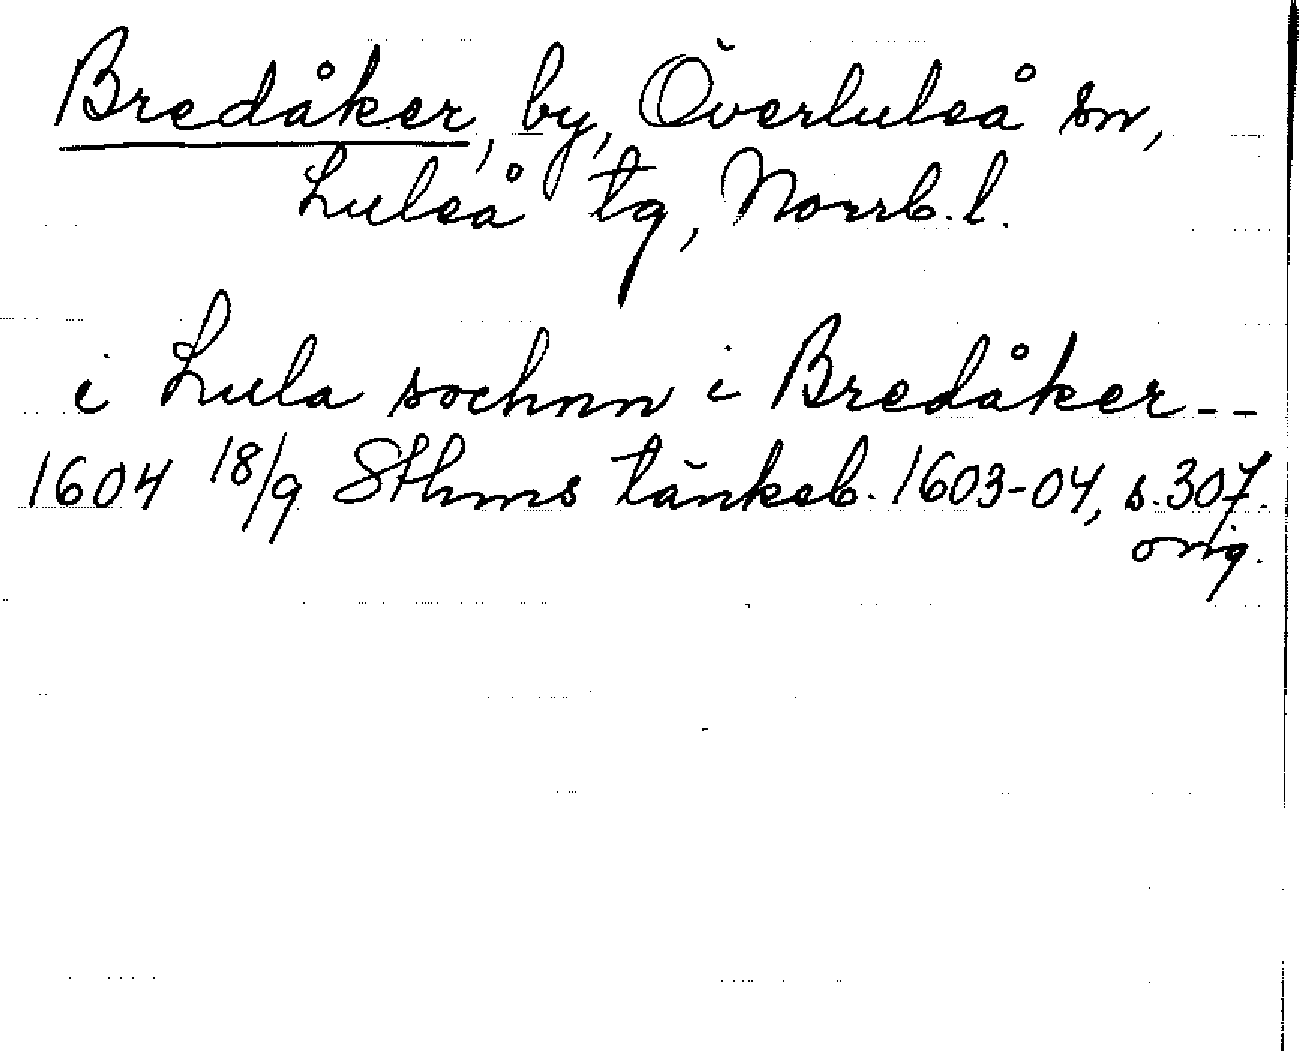 Bredåker, by, Överluleå sn,
Luleå tg, Norrb. l.
i Lula sochnn i Bredåker--
1604 18/9 Sthms tänkeb. 1603-04, s. 307.
orig.